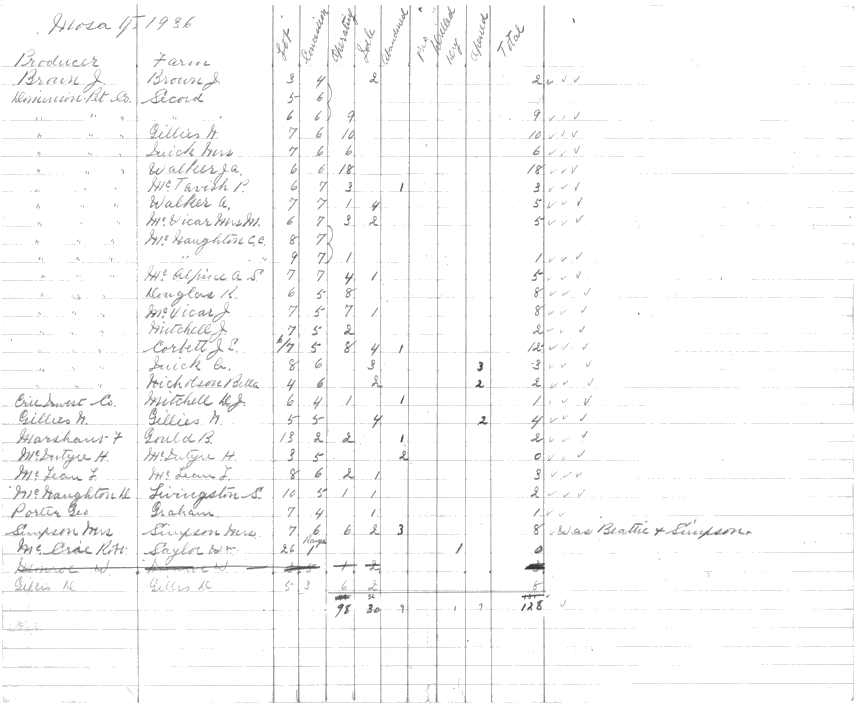 Mosa 1936
Lot Concession Operating Idle Abandoned Dry Drilled Dry Opened Total
Producer Farm
Brown J. Brown J 3 4 2 2 ✓ ✓ ✓
Dominion Pet. Co. Secord 5 6
" " " " " 6 6 9 9 ✓ ✓ ✓
" " " Gillies N. 7 6 10 10 ✓ ✓ ✓
" " " Quick Mrs 7 6 6 6 ✓ ✓ ✓
" " " Walker Ja. 6 6 18 18 ✓ ✓ ✓
" " " McTavish P. 6 7 3 1 3 ✓ ✓ ✓
" " " Walker A. 7 7 1 4 5 ✓ ✓ ✓
" " " McVicar Mrs M. 6 7 3 2 5 ✓ ✓ ✓
" " " McNaughton C.C. 8 7
" " " " " 9 7 1 1 ✓ ✓ ✓
" " " McAlpine A S. 7 7 4 1 5 ✓ ✓ ✓
" " " Douglas K. 6 5 8 8 ✓ ✓ ✓
" " " McVicar J 7 5 7 1 8 ✓ ✓ ✓
" " " Mitchell J. 7 5 2 2 ✓ ✓ ✓
" " " Corbett J E. 6/7 5 8 4 1 12 ✓ ✓ ✓
" " " Quick A. 8 6 3 3 3 ✓ ✓ ✓
" " " Nicholson Bella 4 6 2 2 2 ✓ ✓ ✓
Erie Invest. Co. Mitchell D.J. 6 4 1 1 1 ✓ ✓ ✓
Gillies N. Gillies N. 5 5 4 2 4 ✓ ✓ ✓
Marshant F Gould B. 13 2 2 1 2 ✓ ✓ ✓
McIntyre H. McIntyre H. 3 5 2 0 ✓ ✓ ✓
McLean F. McLean F. 8 6 2 1 3 ✓ ✓ ✓
McNaughton D Livingston S. 10 5 1 1 2 ✓ ✓ ✓
Porter Geo Graham. 7 4 1 1 ✓ ✓
Simpson Mrs Simpson Mrs. 7 6 6 2 3 8 ✓ Was Beattie & Simpson.
Range
McCrae Robt Saylor Wm 26 1 1 0
Monroe W Monroe W 1 2
Gillis D Gillis D 5 3 6 2 8
98 30 128 ✓